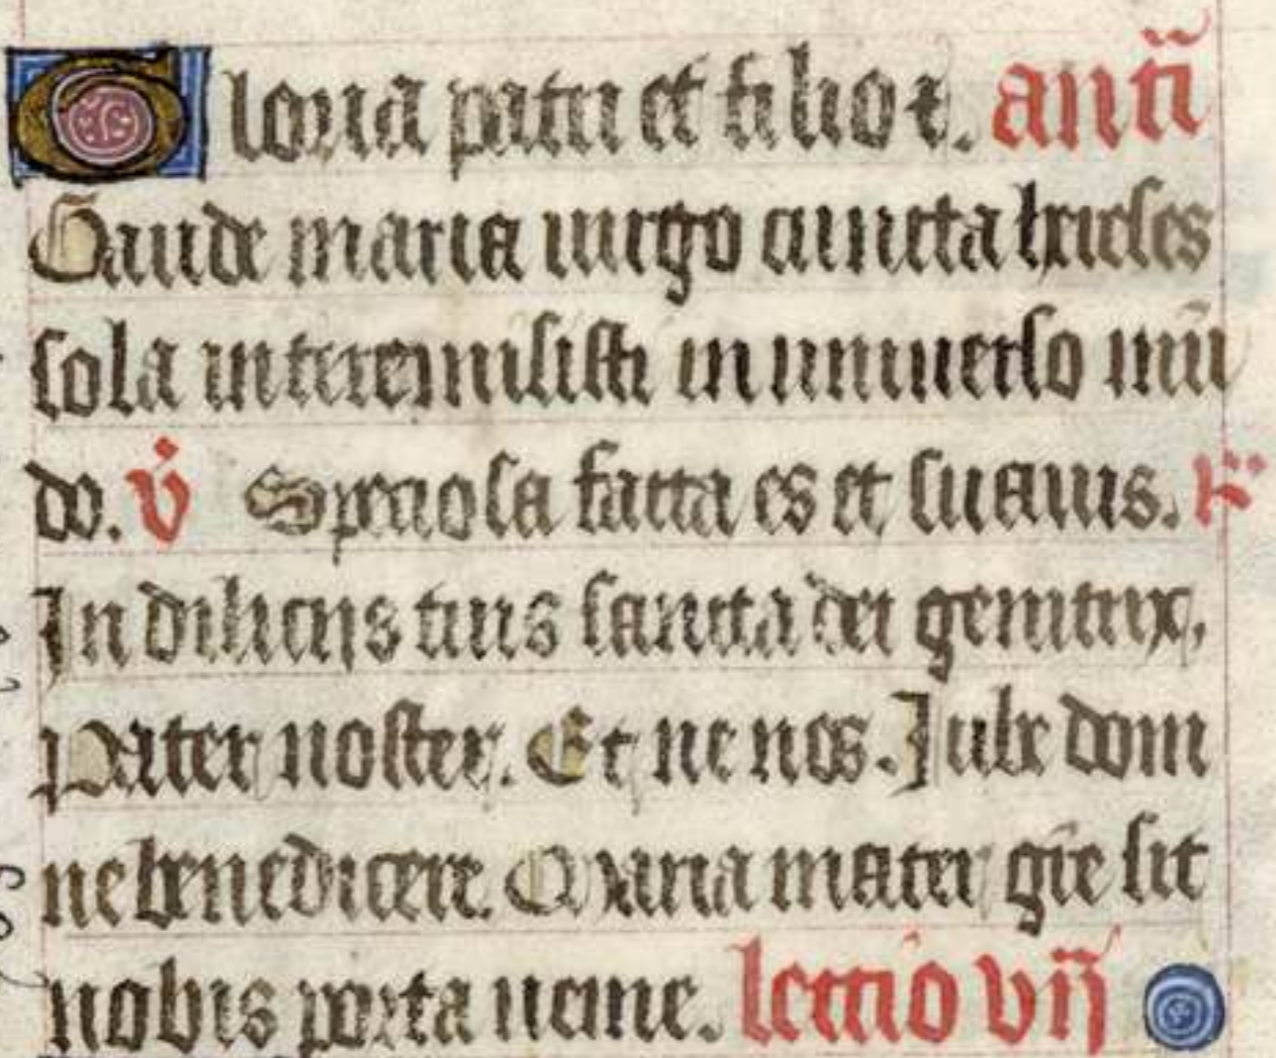 Gloria patri et filio ⁊. antͥ
Gaude maria uirgo cuncta hereses
sola interemisisti in uniuerso mū
do. v̇ Speciosa facta es et suauis. R̈
In delicijs tuis sancta dei genitrix,
Pater noster. Et ne nos. Jube dom
ne benedicere. Maria mater gr̄e sit
nobis porta uenie. lectio vij